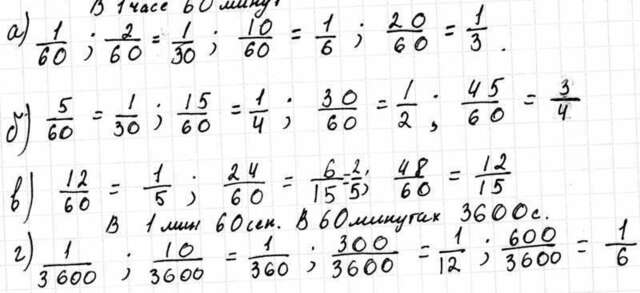 В 1 часе 60 минут
а) 1/60 ; 2/60 = 1/30 ; 10/60 = 1/6 ; 20/60 = 1/3 .
б) 5/60 = 1/30 ; 15/60 = 1/4 ; 30/60 = 1/2 ; 45/60 = 3/4
в) 12/60 = 1/5 ; 24/60 = 6/15 = 2/5 ; 48/60 = 12/15
В 1 мин 60 сек. В 60 минутах 3600 с.
г) 1/3600 ; 10/3600 = 1/360 ; 300/3600 = 1/12 ; 600/3600 = 1/6